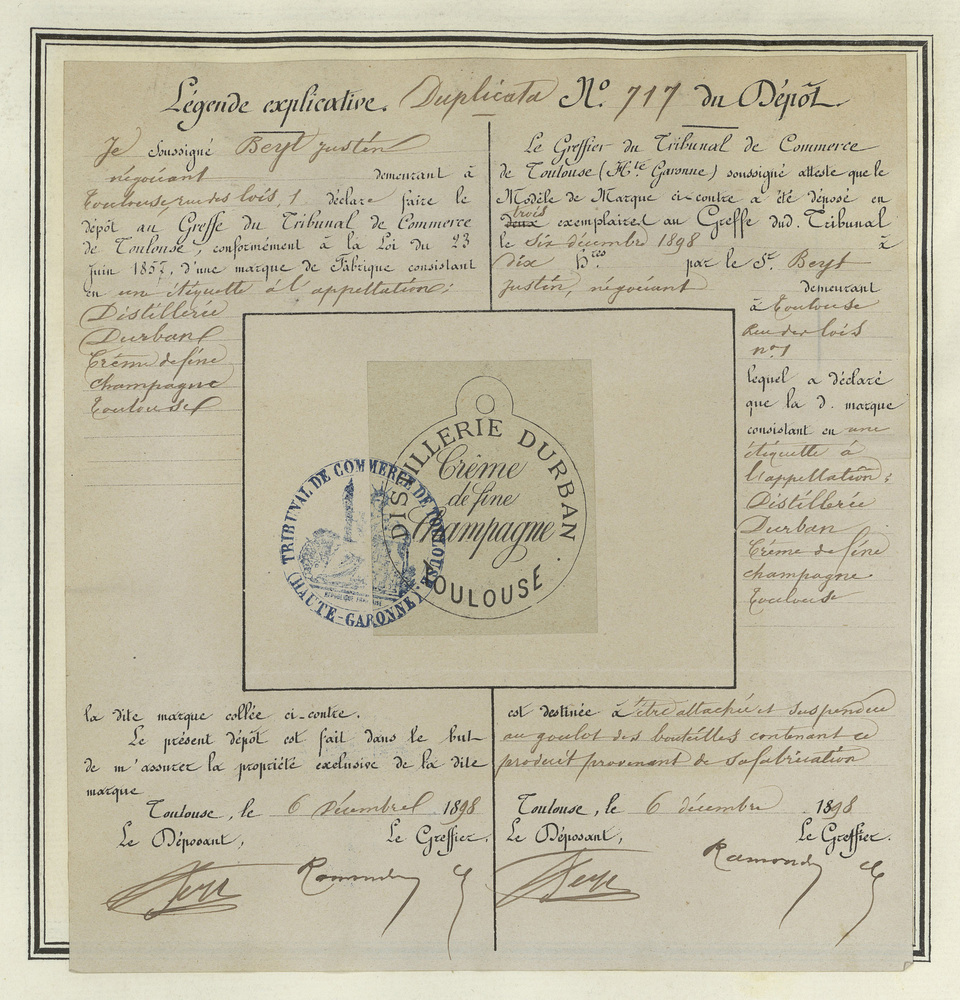 Légende explicative. Duplicata N° 717 du Dépôt.
Je soussigné Beyt Justin
négociant demeurant à
Toulouse, rue des lois, 1 déclare faire le
dépôt au Greffe du Tribunal de Commerce
de Toulouse, conformément à la Loi du 23
juin 1857, d'une marque de Fabrique consistant
en une étiquette à l'appellation:
Distillerie
Durban
Crème de fine
champagne
Toulouse
Le Greffier du Tribunal de Commerce
de Toulouse (Hte Garonne) soussigné atteste que le
Modèle de Marque ci-contre a été déposé en
trois
deux exemplaires au Greffe dud. Tribunal
le six décembre 1898 à
dix h.res par le Sr. Beyt
Justin, négociant demeurant
à Toulouse
Rue des lois
n° 1
lequel a déclaré
que la d. marque
consistant en une
étiquette à
l'appellation:
Distillerie
Durban
Crème de fine
champagne
Toulouse
DISTILLERIE DURBAN
Crème
de fine
Champagne
TOULOUSE.
TRIBUNAL DE COMMERCE DE TOULOUSE
(HAUTE-GARONNE)
la dite marque collée ci-contre.
Le présent dépôt est fait dans le but
de m'assurer la propriété exclusive de la dite
marque
Toulouse, le 6 Décembre 1898
Le Déposant, Le Greffier.
Beyt Ramondy
est destinée à être attachée et suspendue
au goulot des bouteilles contenant ce
produit provenant de sa fabrication
Toulouse, le 6 décembre 1898
Le Déposant, Le Greffier.
Beyt Ramondy